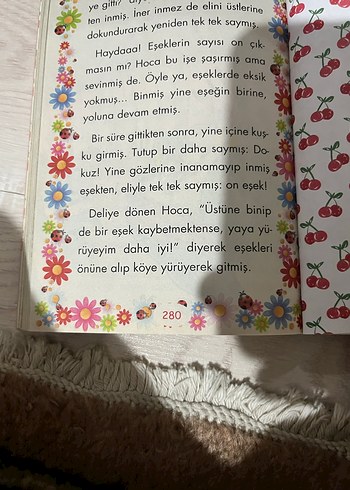 ye gitti?
ten inmiş. İner inmez de elini üstlerine
dokundurarak yeniden tek tek saymış.
Haydaaa! Eşeklerin sayısı on çık-
masın mı? Hoca bu işe şaşırmış ama
sevinmiş de. Öyle ya, eşeklerde eksik
yokmuş... Binmiş yine eşeğin birine,
yoluna devam etmiş.
Bir süre gittikten sonra, yine içine kuş-
ku girmiş. Tutup bir daha saymış: Do-
kuz! Yine gözlerine inanamayıp inmiş
eşekten, eliyle tek tek saymış: on eşek!
Deliye dönen Hoca, “Üstüne binip
de bir eşek kaybetmektense, yaya yü-
rüyeyim daha iyi!” diyerek eşekleri
önüne alıp köye yürüyerek gitmiş.
280